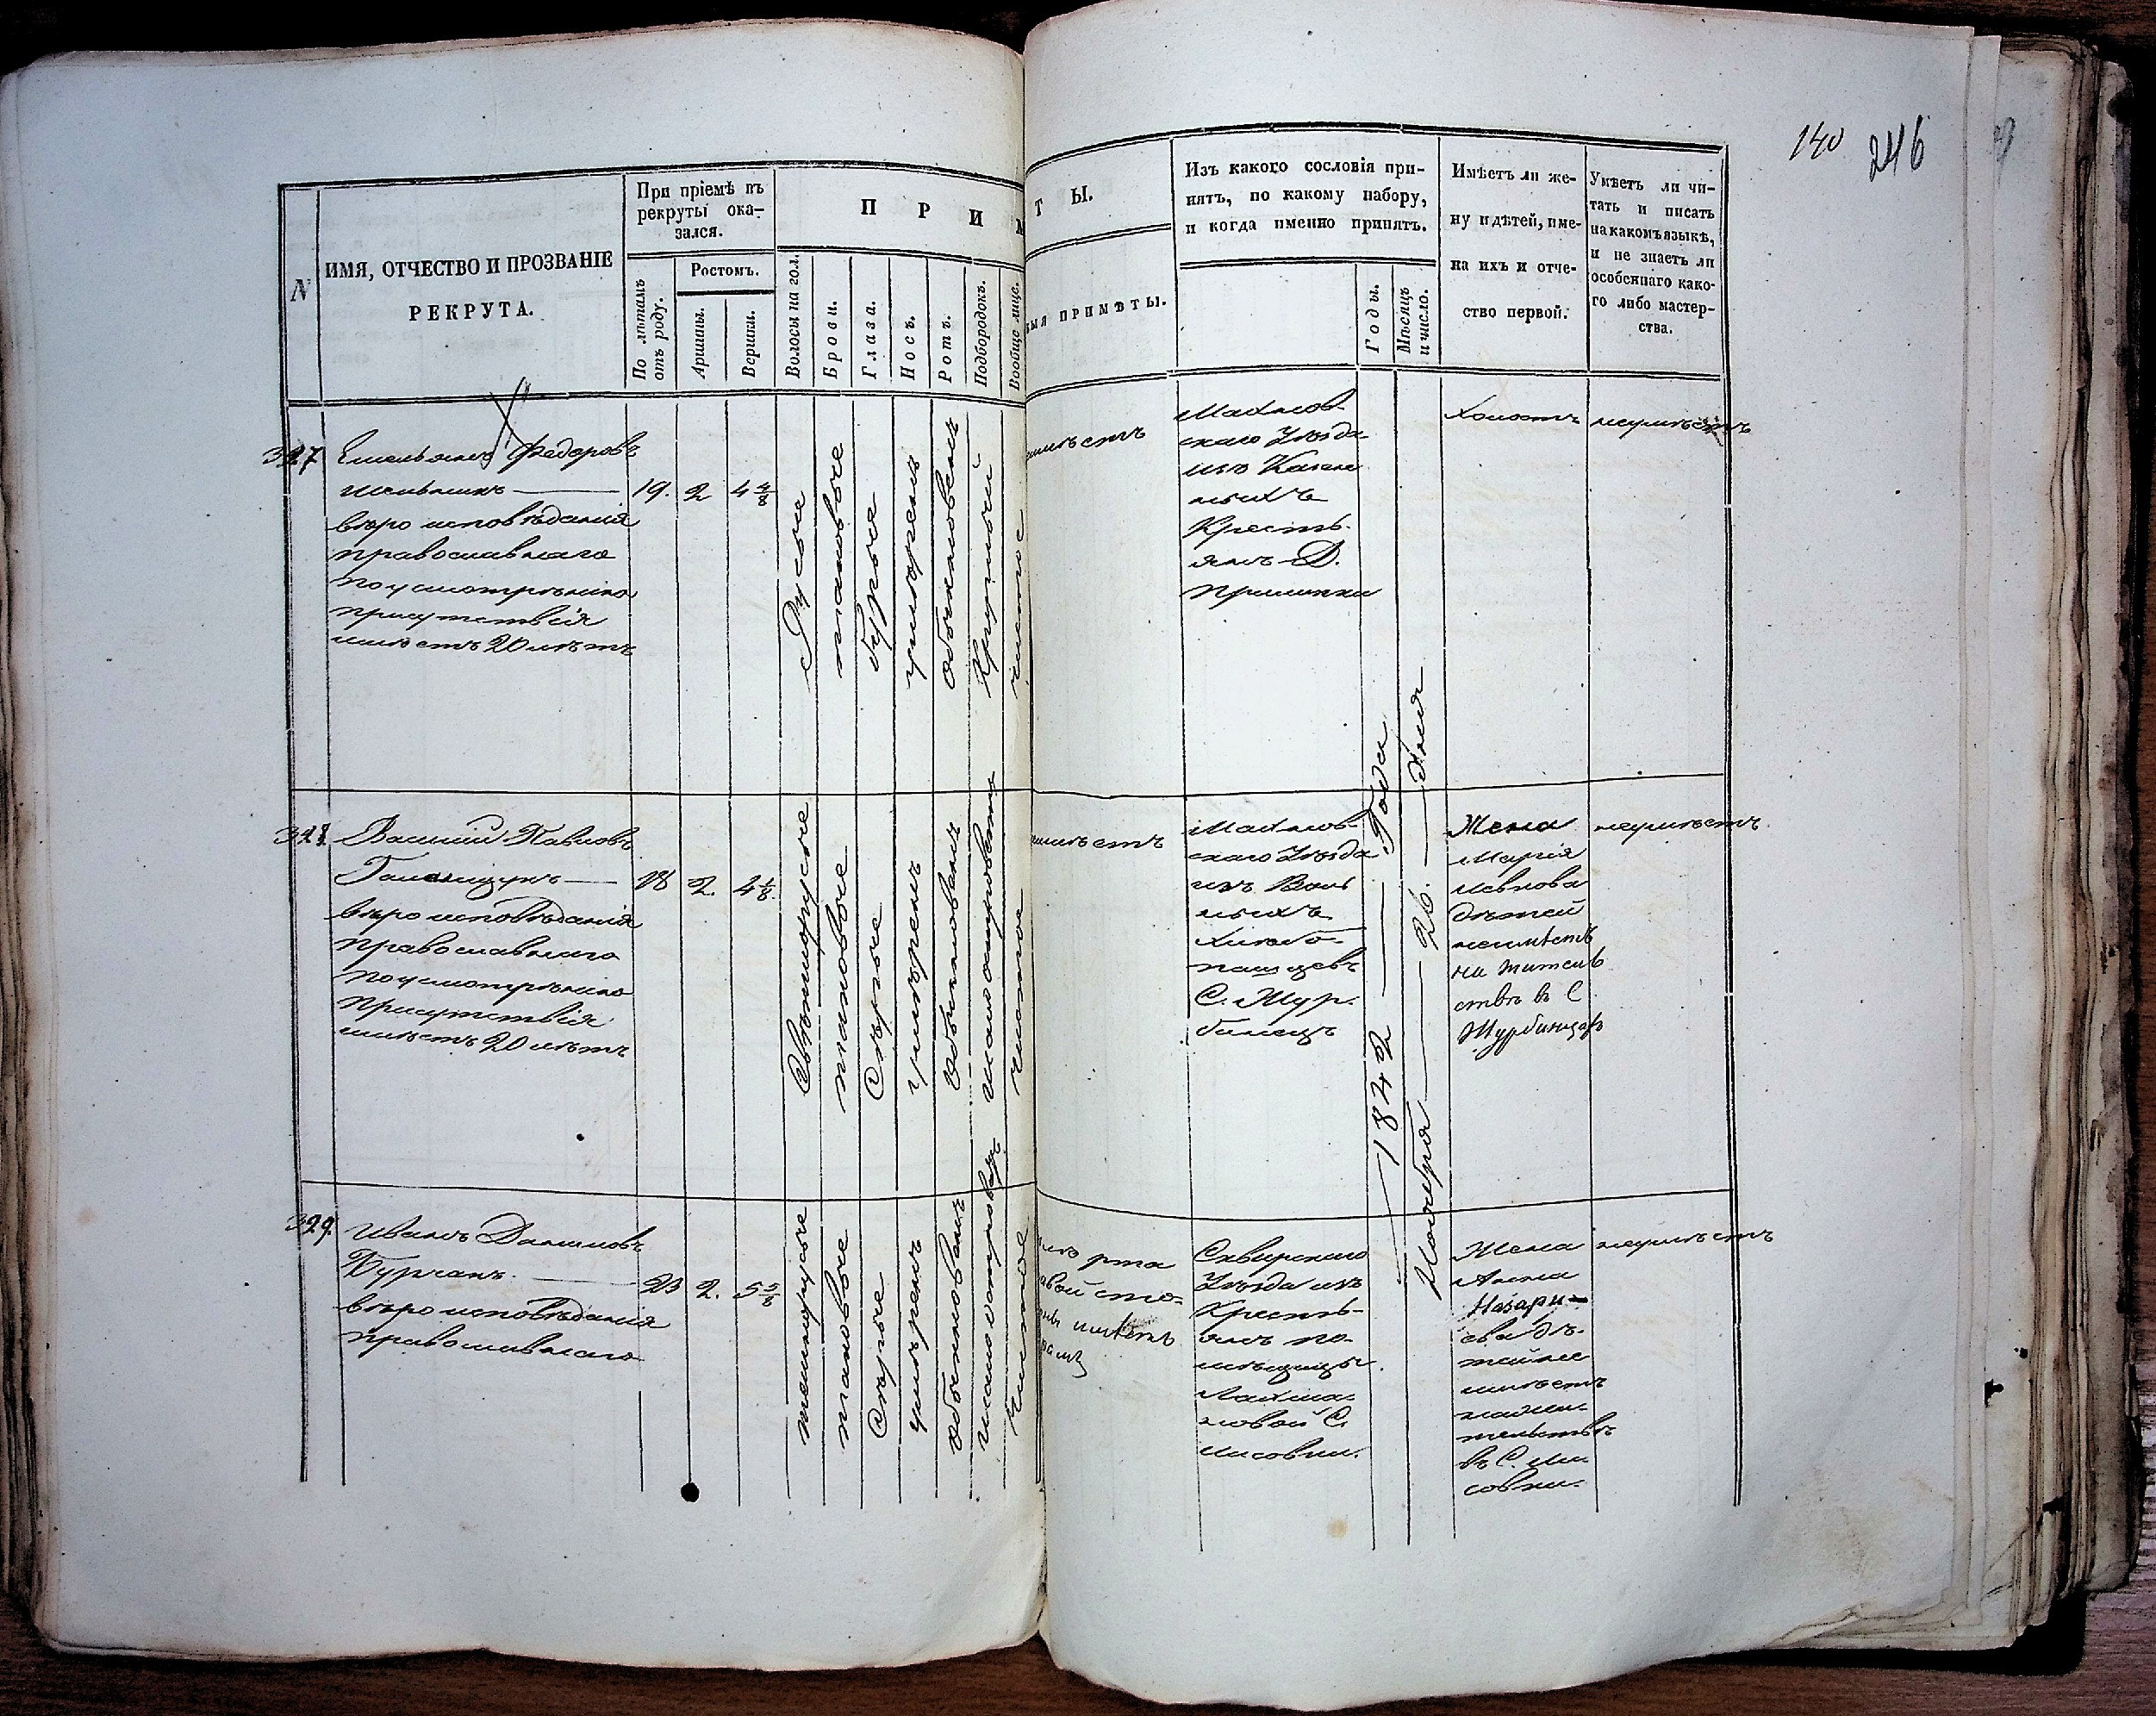 140 246
N
ИМЯ, ОТЧЕСТВО И ПРОЗВАНІЕ
РЕКРУТА.
При пріемѣ въ
рекруты ока-
зался.
По лѣтамъ
отъ роду.
Ростомъ.
Аршины.
Вершки.
П Р И М
Волосы на гол.
Брови.
Глаза.
Носъ.
Ротъ.
Подбородокъ.
Вообще лице.
Т Ы.
ЫЯ ПРИМѢТЫ.
Изъ какого сословія при-
нятъ, по какому набору,
и когда именно принятъ.
Годы.
Мѣсяцъ
и число.
Имѣетъ ли же-
ну и дѣтей, име-
на ихъ и отче-
ство первой.
Умѣетъ ли чи-
тать и писать
на какомъ языкѣ,
и не знаетъ ли
особеннаго како-
го либо мастер-
ства.
327
Емельянъ Федоровъ
19. 2 4 4/8
вѣро исповѣданія
православнаго
по усмотрѣнію
присутствія
имѣетъ 20 лѣтъ
Русые
тановые
бурые
умѣренъ
обыкновенъ
Круглый
чистое
имѣетъ
Махнов-
скаго Уѣзда
изъ Казен
ныхъ
Кресть-
янъ Д.
холостъ
неумѣетъ
328
Василий Павловъ
18 2. 4 1/8
вѣро исповѣданія
православнаго
по усмотрѣнію
Присутствія
имѣетъ 20 лѣтъ
Свѣтлорусые
тановые
Сѣрые
умѣренъ
обыкновенъ
чистое
имѣетъ
Махнов-
скаго Уѣзда
изъ Воль
ныхъ
хлѣбо-
пашцевъ
С. Жур-
бинецъ
1842 Года
Ноября 26. дня
Жена
Марія
Левкова
дѣтей
неимѣетъ
на житель
ствѣ въ С
Журбинцахъ
неумѣетъ.
329.
Иванъ Даниловъ
Бурчакъ.
23 2. 5 5/8
вѣро исповѣданія
православнаго
темнорусые
тановые
Сѣрые
умѣренъ
обыкновенъ
Чистое
рта
вой сто-
имѣетъ
Сквирскаго
Уѣзда изъ
Кресть-
янъ по-
мѣщицы
новой С.
Лисовки.
Жена
Анна
Назарі-
ева дѣ-
тей не
имѣетъ
на жи-
тельствѣ
въ С. Ли
совки.
неумѣетъ